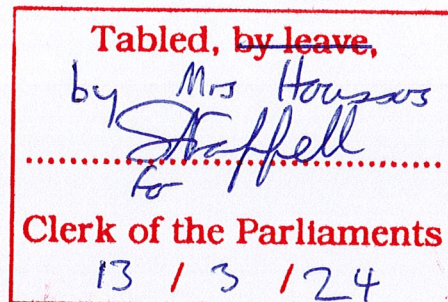 Tabled, by leave,
by Mrs Houssos
for
Clerk of the Parliaments
13 / 3 / 24